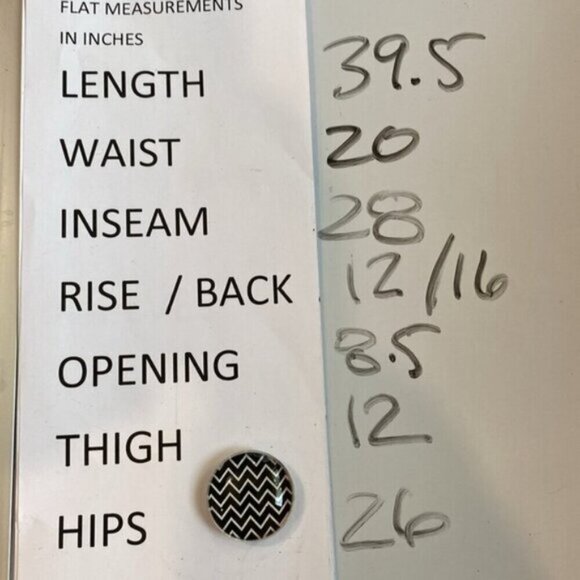 FLAT MEASUREMENTS
IN INCHES
LENGTH 39.5
WAIST 20
INSEAM 28
RISE / BACK 12/16
OPENING 8.5
THIGH 12
HIPS 26